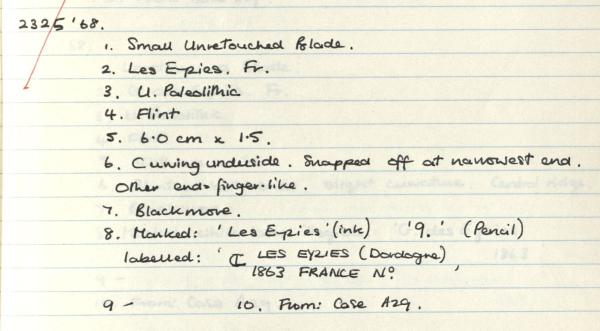 2325 '68.
1. Small Unretouched Blade.
2. Les Eyzies. Fr.
3. U. Paleolithic
4. Flint
5. 6.0 cm x 1.5.
6. Curving underside. Snapped off at narrowest end.
Other end = finger-like.
7. Blackmore.
8. Marked: 'Les Eyzies' (ink) '9.' (Pencil)
labelled: ' LES EYZIES (Dordogne)
1863 FRANCE No '
9 - 10. From: Case A29.